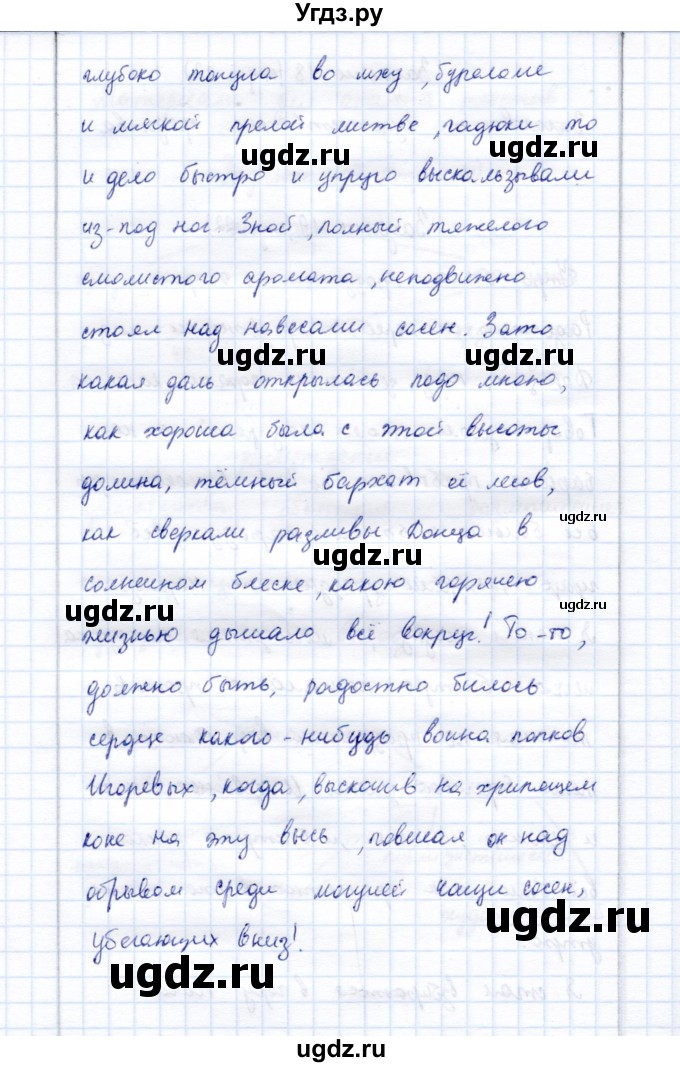 Угдз.ру
глубоко тонула во мху, буреломе
и мягкой прелой листве, гадюки то
ugdz.ru ugdz.ru
и дело быстро и упруго выскальзывали
из-под ног Зной, полный тяжелого
смолистого аромата, неподвижно
стоял над навесами сосен. Зато
ugdz.ru ugdz.ru
какая даль открылась подо мною,
как хороша была с этой высоты
долина, тёмный бархат её лесов,
ugdz.ru
как сверкали разливы Донца в
ugdz.ru
солнечном блеске, какою горячею
ugdz.ru ugdz.ru
жизнью дышало всё вокруг! То-то,
должно быть, радостно билось
ugdz.ru ugdz.ru
сердце какого-нибудь воина полков
Игоревых, когда, выскочив на хрипящем
коне на эту высь, повисал он над
обрывом среди могучей чащи сосен,
ugdz.ru
убегающих вниз!
ugdz.ru
ugdz.ru